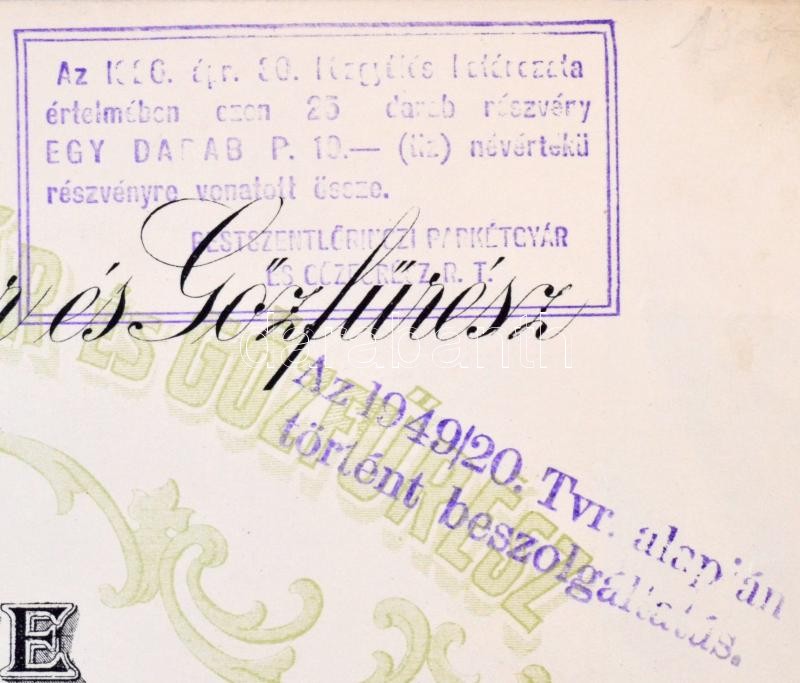 Az ápr. 30. közgyűlés határozata
értelmében ezen 25 darab részvény
EGY DARAB P. 10.— (tiz) névértékű
részvényre vonatott össze.
PESTSZENTLŐRINCZI PARKÉTGYÁR
ÉS GŐZFŰRÉSZ R. T.
és Gőzfűrész
ÉS GŐZFŰRÉSZ
darabanth
Az 1949/20. Tvr. alapján
történt beszolgáltatás.
E